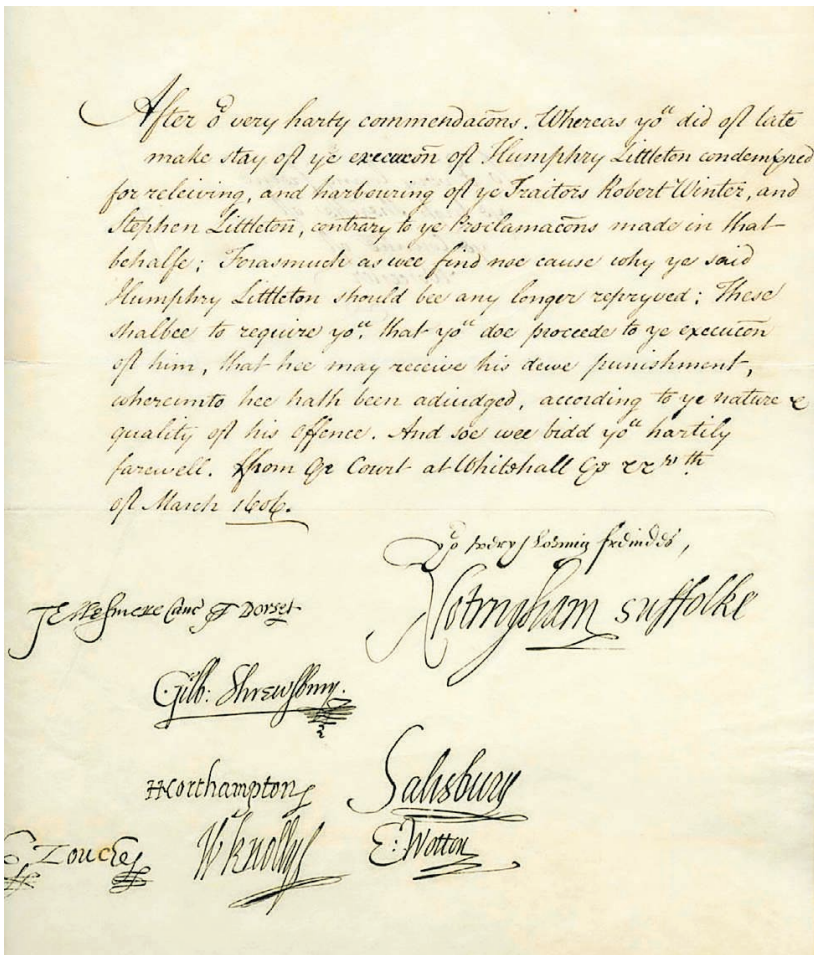 After or very harty commendacõns. Whereas you did of late
make stay of ye execucõn of Humphry Littleton condempned
for releiving, and harbouring of ye Traitors Robert Winter, and
Stephen Littleton, contrary to ye Proclamacõns made in that
behalfe; Forasmuch as wee find noe cause why ye said
Humphry Littleton should bee any longer repryved; These
shalbee to require you, that you doe proceede to ye execucõn
of him, that hee may receive his dewe punishment,
whereunto hee hath been adiudged, according to ye nature &
quality of his Offence. And soe wee bidd you hartily
farewell. From Court at Whitehall
of March 1606.
Yo very loving freindes,
TEllesmere Canc T Dorset
Notingham Suffolke
Gilb: Shrewsbury.
HNorthampton Salisbury
E Zouche W Knollys E: Wotton